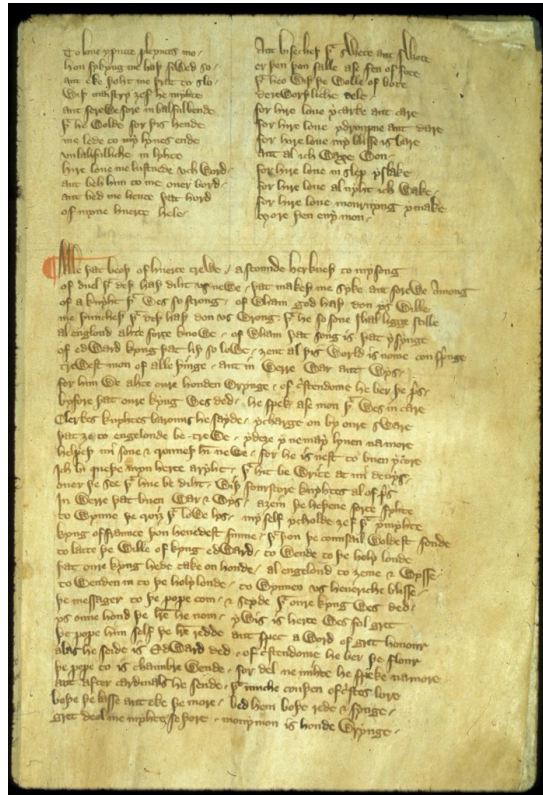 To loue y putte pleyntes mo
hou sykyng me haþ siwed so
ant eke þoht me þrat to slo
wiþ maistry ȝef he myhte
ant serewe sore in balful bende
þt he wolde for þis hende
me lede to my lyues ende
vnlahfulliche in lyhte
hire loue me lustnede vch word
ant beh him to me ouer bord
ant bed me hente þat hord
of myne huerte hele
Ant bisecheþ þt swete ant swote
er þen þou falle ase fen of fote
þt heo wiþ þe wolle of bote
dereworþliche dele
for hire loue y carke ant care
for hire loue y droupne ant dare
for hire loue my blisse is bare
ant al ich waxe won
for hire loue in slep y slake
for hire loue al nyht ich wake
for hire loue mournyng y make
more þen eny mon
Alle þat beoþ of huerte trewe / a stounde herkneþ to my song
of duel þt deþ haþ diht vs newe / þat makeþ me syke ant sorewe among
of a knyht þt wes so strong / of wham god haþ don ys wille
me þuncheþ þt deþ haþ don vs wrong / þt he so sone shal ligge stille
al englond ahte forte knowe / of wham þat song is þat y synge
of edward kyng þat liþ so lowe / ȝent al þis world is nome con springe
trewest mon of alle þinge / ant in werre war ant wys
for him we ahte oure honden wrynge / of cstendome he ber þe pris
byfore þat oure kyng wes ded / he spek ase mon þt wes in care
clerkes knyhtes barouns he sayde / y charge ou by oure sware
þat ȝe to engelonde be trewe / y deȝe y ne may lyuen na more
helpeþ mi sone & crouneþ him newe / for he is nest to buen ycore
Ich biqueþe myn herte aryht / þt hit be write at mi deuys
ouer þe see þt hue be diht / wiþ fourscore knyhtes al of pris
In werre þat buen war & wys / aȝein þe heþene forte fyhte
to wynne þe croiȝ þt lowe lys / my self ycholde ȝef þt y myhte
kyng of fraunce þou heuedest sunne / þt þou þe counsail woldest fonde
to latte þe wille of kyng edward / to wende to þe holy londe
þat oure kyng hede take on honde / al engelond to ȝeme & wysse
to wenden in to þe holy londe / to wynnen vs heueriche blisse
þe messager to þe pope com / & seyde þt oure kyng wes ded
ys oune hond þe lettre he nom / ywis is herte wes ful gret
þe pope him self þe lettre redde / ant spec a word of gret honour
alas he seide is edward ded / of cstendome he ber þe flour
þe pope to is chaumbre wende / for del ne mihte he speke na more
ant after cardinals he sende / þt muche couþen of cstes lore
boþe þe lasse ant eke þe more / bed hem boþe rede & synge
gret deol me myhte se þore / mony mon is honde wrynge